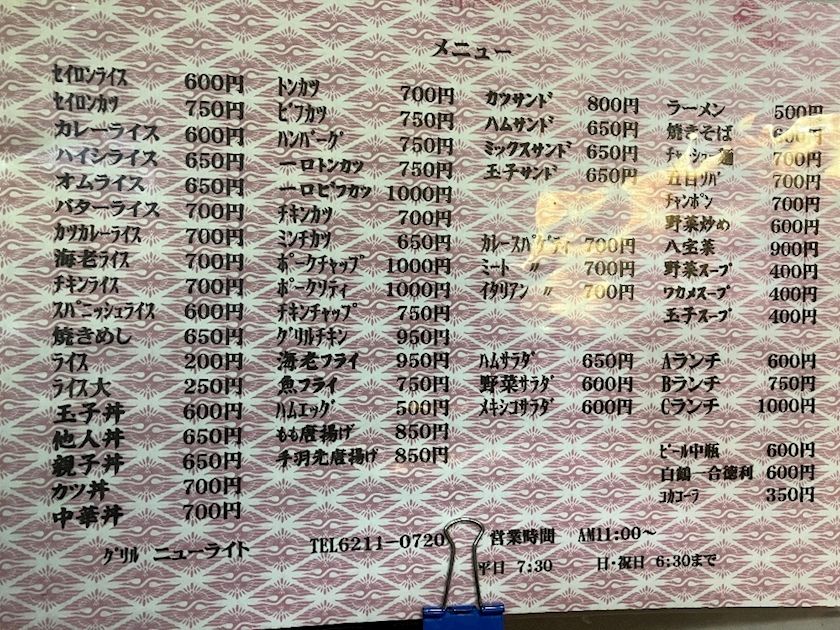 メニュー
セイロンライス 600円
セイロンカツ 750円
カレーライス 600円
ハイシライス 650円
オムライス 650円
バターライス 700円
カツカレーライス 700円
海老ライス 700円
チキンライス 700円
スパニッシュライス 600円
焼きめし 650円
ライス 200円
ライス大 250円
玉子丼 600円
他人丼 650円
親子丼 650円
カツ丼 700円
中華丼 700円
トンカツ 700円
ビフカツ 750円
ハンバーグ 750円
一口トンカツ 750円
一口ビフカツ 1000円
チキンカツ 700円
ミンチカツ 650円
ポークチャップ 1000円
ポークソティ 1000円
チキンチャップ 750円
グリルチキン 950円
海老フライ 950円
魚フライ 750円
ハムエッグ 500円
もも唐揚げ 850円
手羽先唐揚げ 850円
カツサンド 800円
ハムサンド 650円
ミックスサンド 650円
玉子サンド 650円
カレースパゲティ 700円
ミート 〃 700円
イタリアン 〃 700円
ハムサラダ 650円
野菜サラダ 600円
メキシコサラダ 600円
ラーメン 500円
焼きそば 600円
チャーシュー麺 700円
五目ソバ 700円
チャンポン 700円
野菜炒め 600円
八宝菜 900円
野菜スープ 400円
ワカメスープ 400円
玉子スープ 400円
Aランチ 600円
Bランチ 750円
Cランチ 1000円
ビール中瓶 600円
白鶴一合徳利 600円
コカコーラ 350円
グリル ニューライト TEL6211-0720 営業時間 AM11:00～
平日 7:30 日・祝日 6:30まで